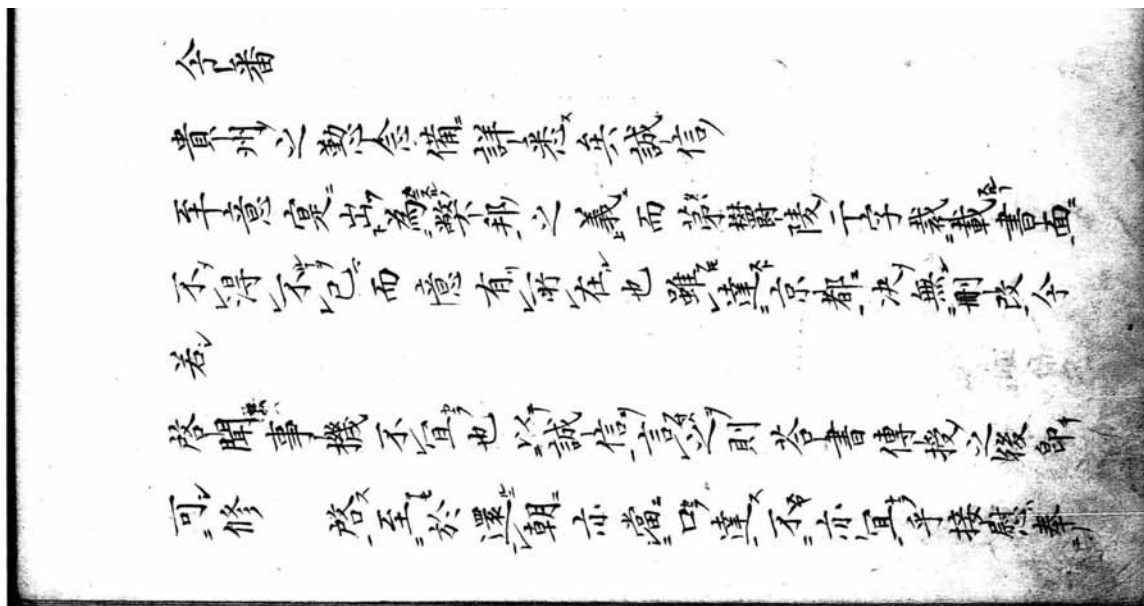 今番
貴州之勤念備詳悉其誠信
至意寔出為弊邦之義而第欝陵二字載書面
不得不已而意有所在也雖達京都決無刪改今
若
啓聞事機不宜也以誠信言之則答書傳授之後即
可修 啓至於還朝亦當口達不亦宜乎接慰奉